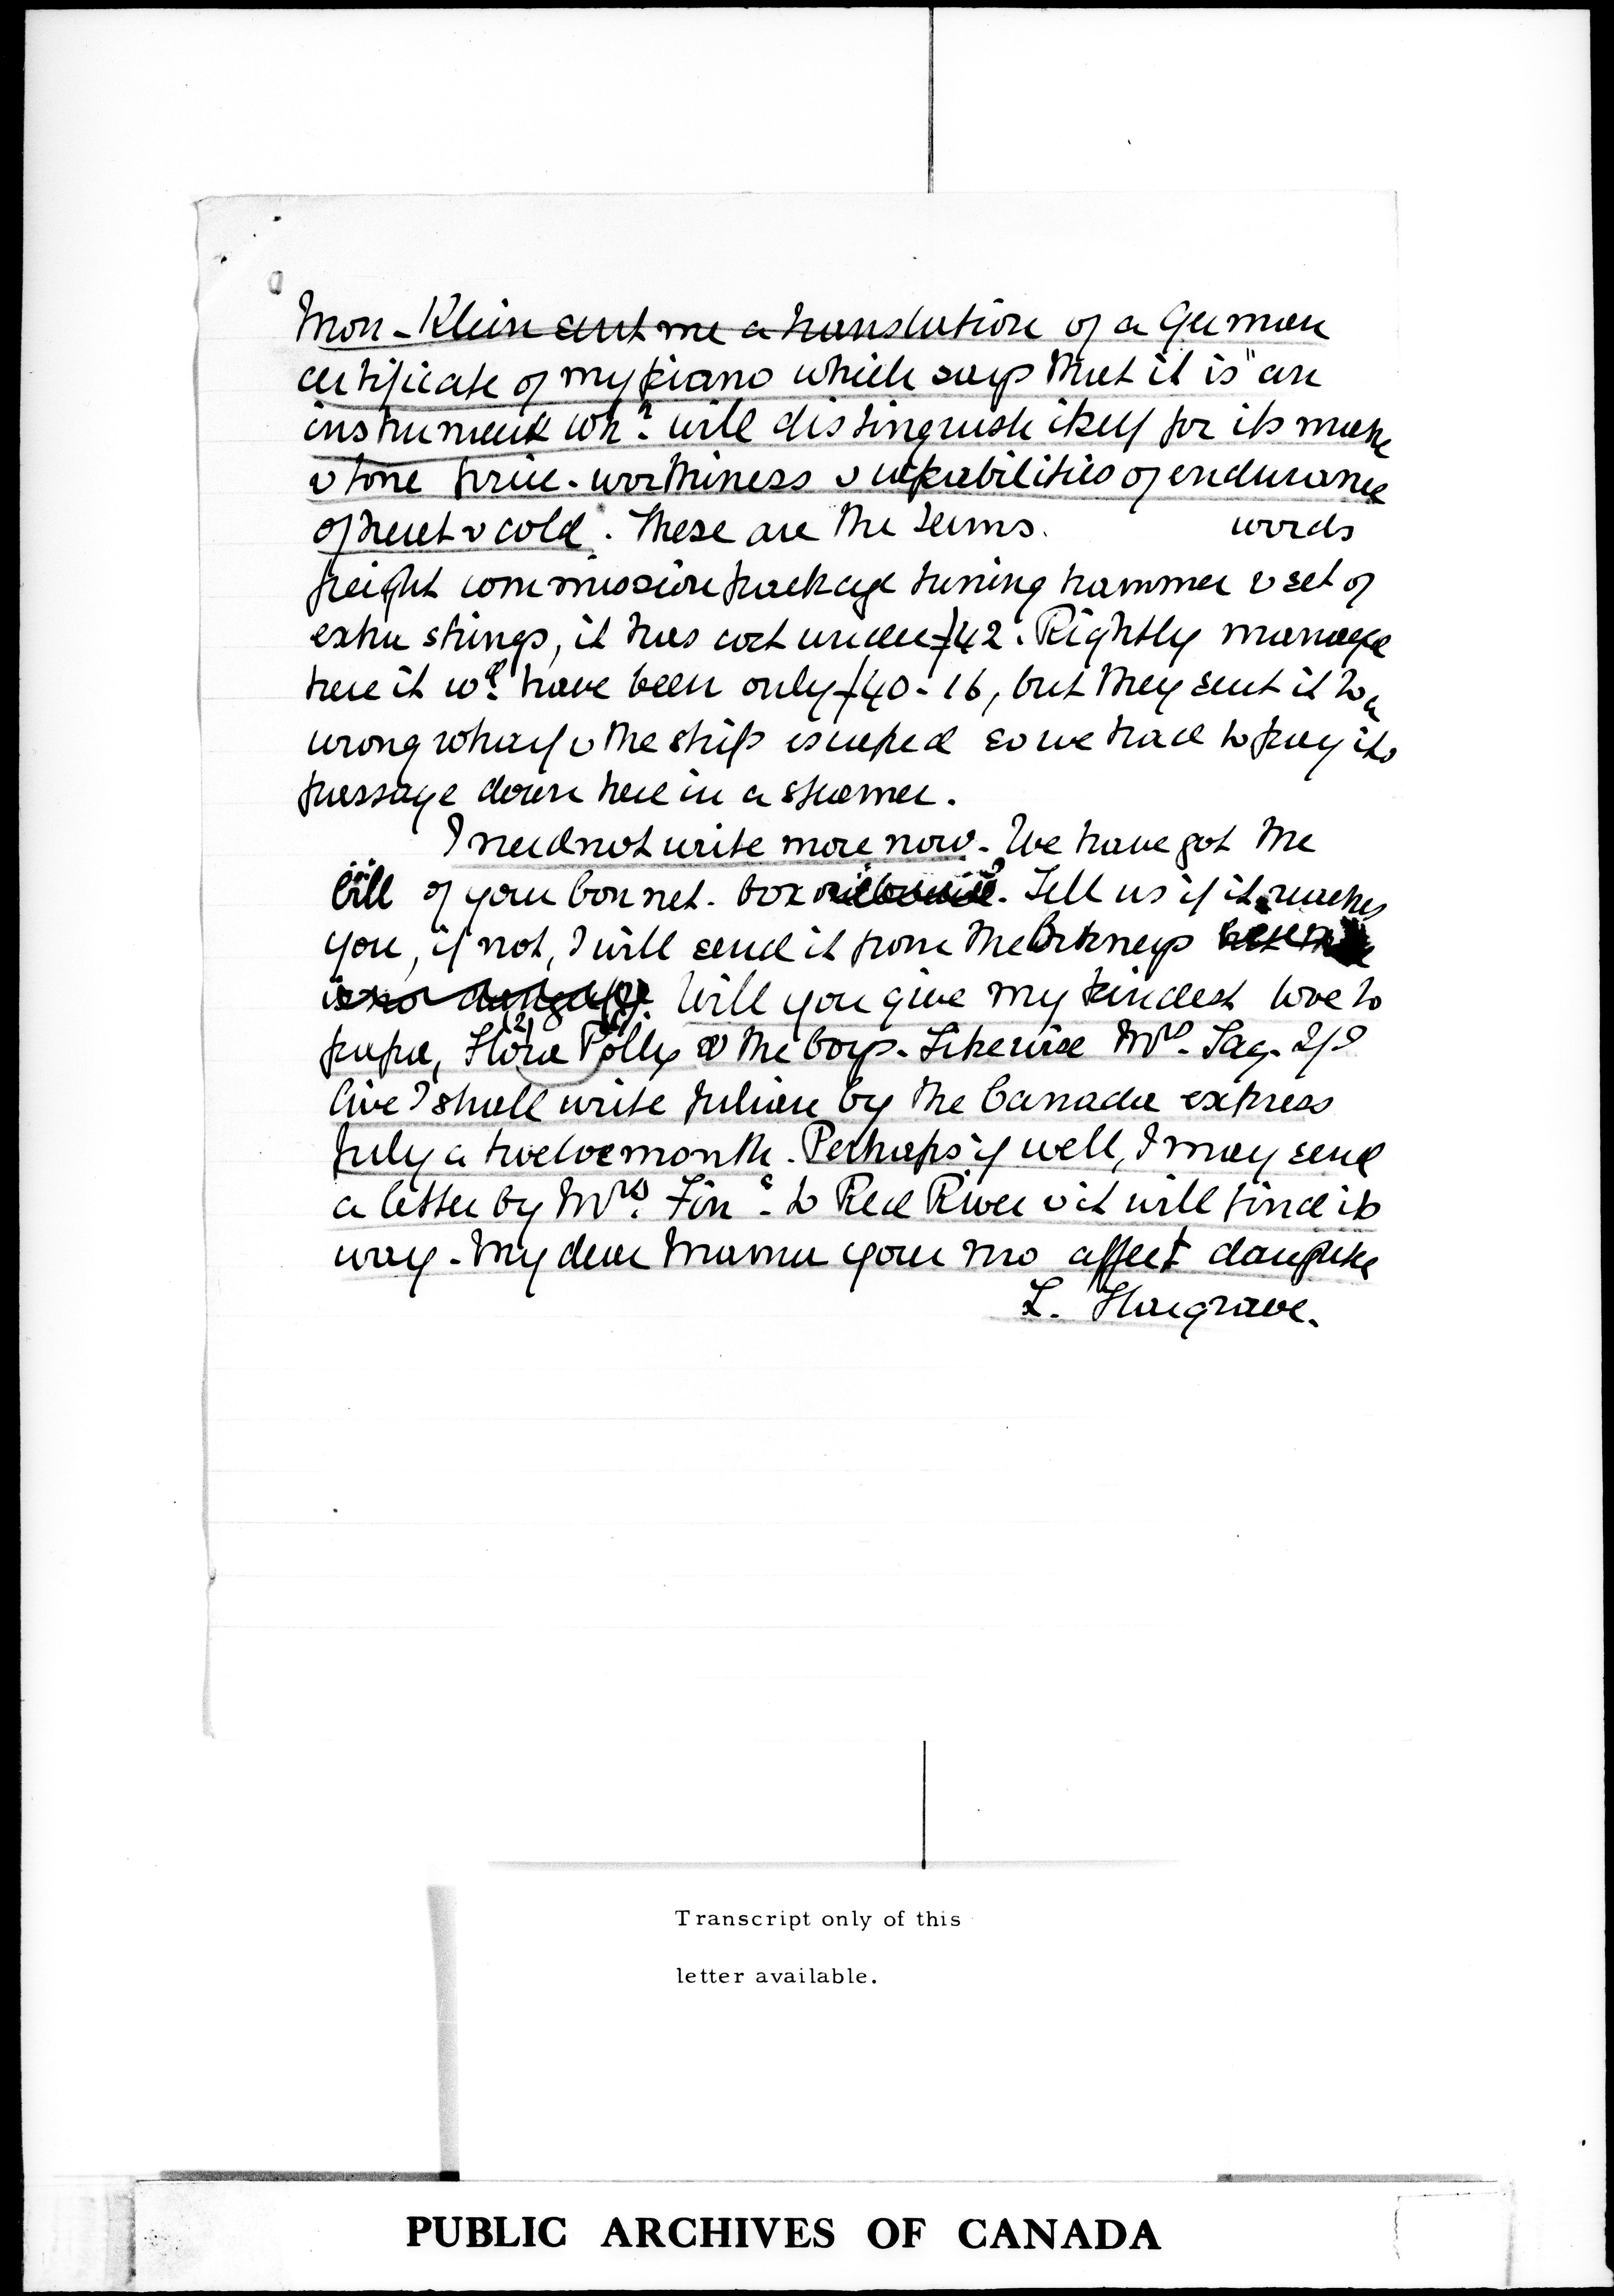 Mon - Klein sent me a translation of a German
certificate of my piano which says that it is "an
instrument wh? will distinguish itself for its make
& tone price-worthiness & capabilities of endurance
of heat & cold". These are the terms. words
freight commission package tuning hammer & set of
extra strings, it has cost under £42. Rightly manage
here it wd. have been only £40-16, but they sent it to a
wrong wharf & the ship escaped so we had to pay its
passage down here in a steamer.
I need not write more now. We have got the
bill of your bonnet. box. Tell us if it reaches
you, if not, I will send it from the Orkneys
is no danger. Will you give my kindest love to
papa, Flora (2) Polly (1) & the boys. Likewise Mrs. Tag. If I
live I shall write Julian by the Canada express
July a twelvemonth. Perhaps if well, I may send
a letter by Mrs. Fin. to Red River & it will find its
way. My dear Mama your mo affect daughter
L. Hargrave.
Transcript only of this
letter available.
PUBLIC ARCHIVES OF CANADA